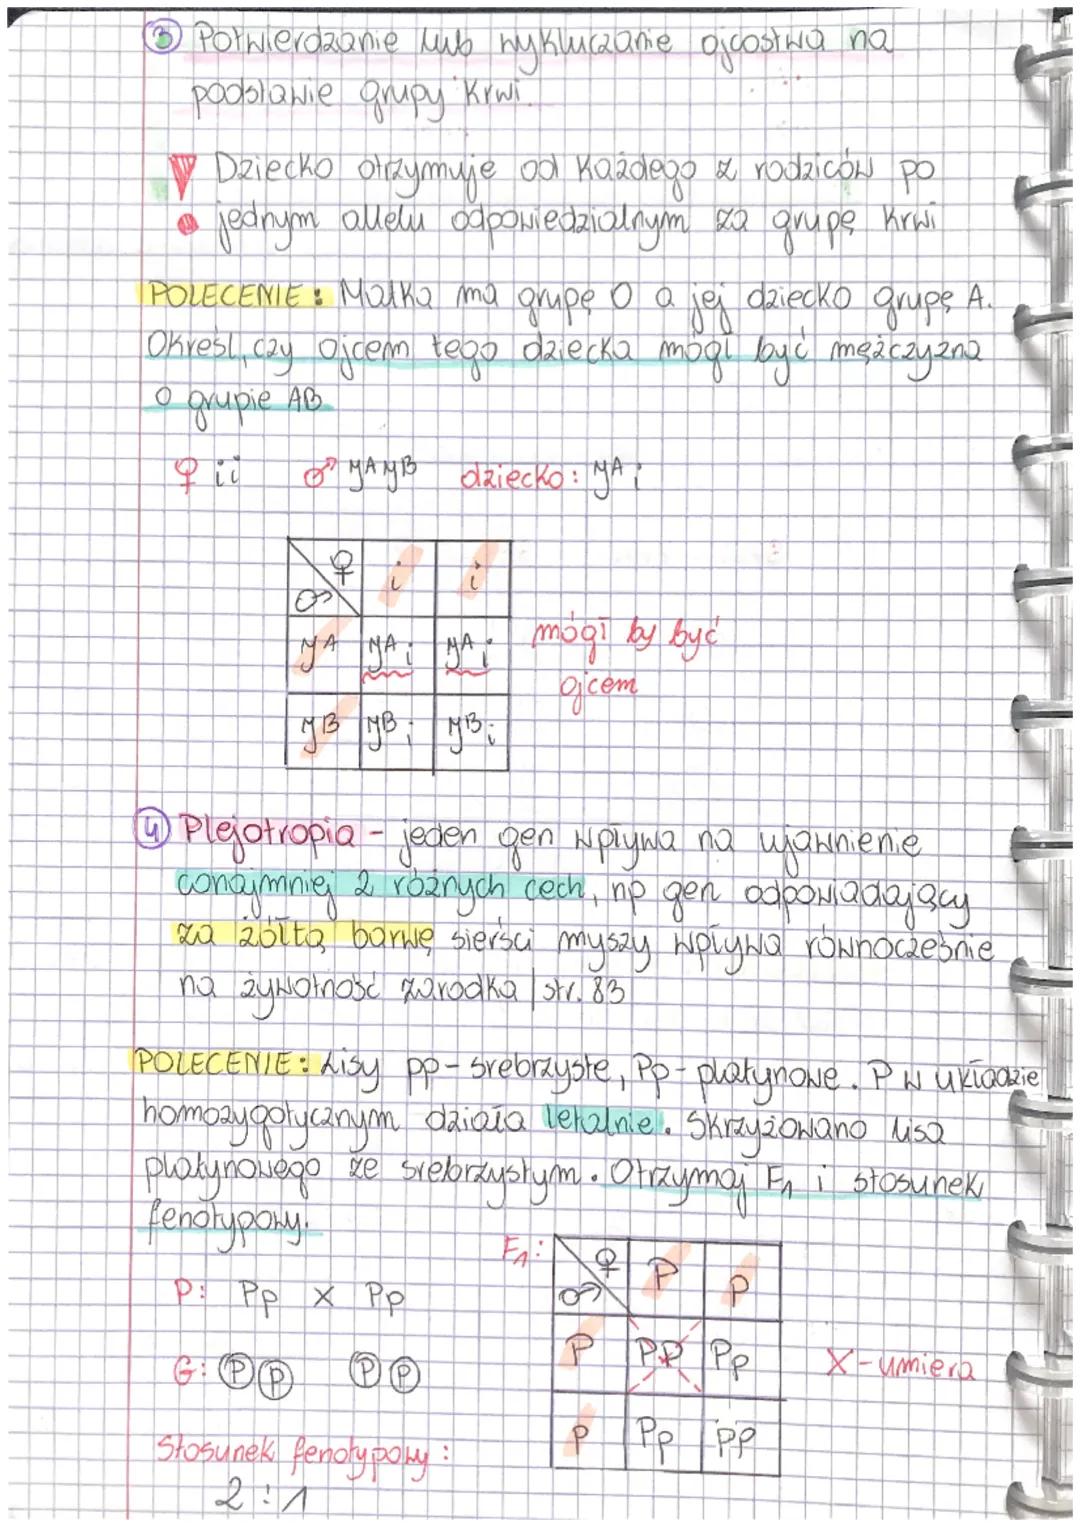 3 Potwierdzanie lub wykluczanie ojcostwa na
podstawie grupy krwi.
Dziecko otrzymuje od każdego z rodziców po
jednym allelu odpowiedzialnym za grupę krwi
POLECENIE: Matka ma grupę 0 a jej dziecko grupę A.
Określ, czy ojcem tego dziecka mógł być mężczyzna
o grupie AB
♀ ii ♂ IAIB dziecko: IA i
♀ i i
♂
IA IA i IA i mógł by być
ojcem
IB IB i IB i
4 Plejotropia - jeden gen wpływa na ujawnienie
conajmniej 2 różnych cech, np gen odpowiadający
za żółtą barwę sierści myszy wpływa równocześnie
na żywotność zarodka | str. 83
POLECENIE: Lisy pp - srebrzyste, Pp - platynowe. P w układzie
homozygotycznym działa letalnie. Skrzyżowano lisa
platynowego ze srebrzystym. Otrzymaj F1 i stosunek
fenotypowy.
F1: ♀ P p
♂
P: Pp x Pp
P PP Pp X - umiera
G: P p P p
p Pp pp
Stosunek fenotypowy:
2:1